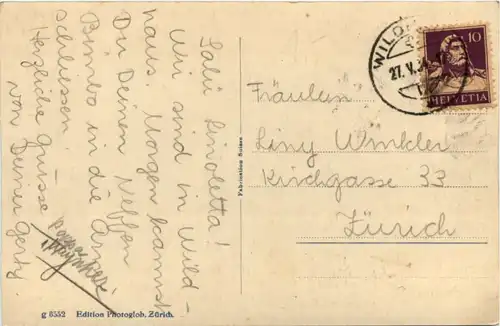 Salü Linoletta!
Wir sind in Wild-
haus. Morgen kannst
Du Deinen Neffen
Bimbo in die Arme
schliessen. –
Herzliche Grüsse
von Deiner Gerty.
g 8552 Edition Photoglob, Zürich.
Fabrication Suisse
WILD
27.V.3
10
HELVETIA
Fräulein
Liny Winkler
Kirchgasse 33
Zürich